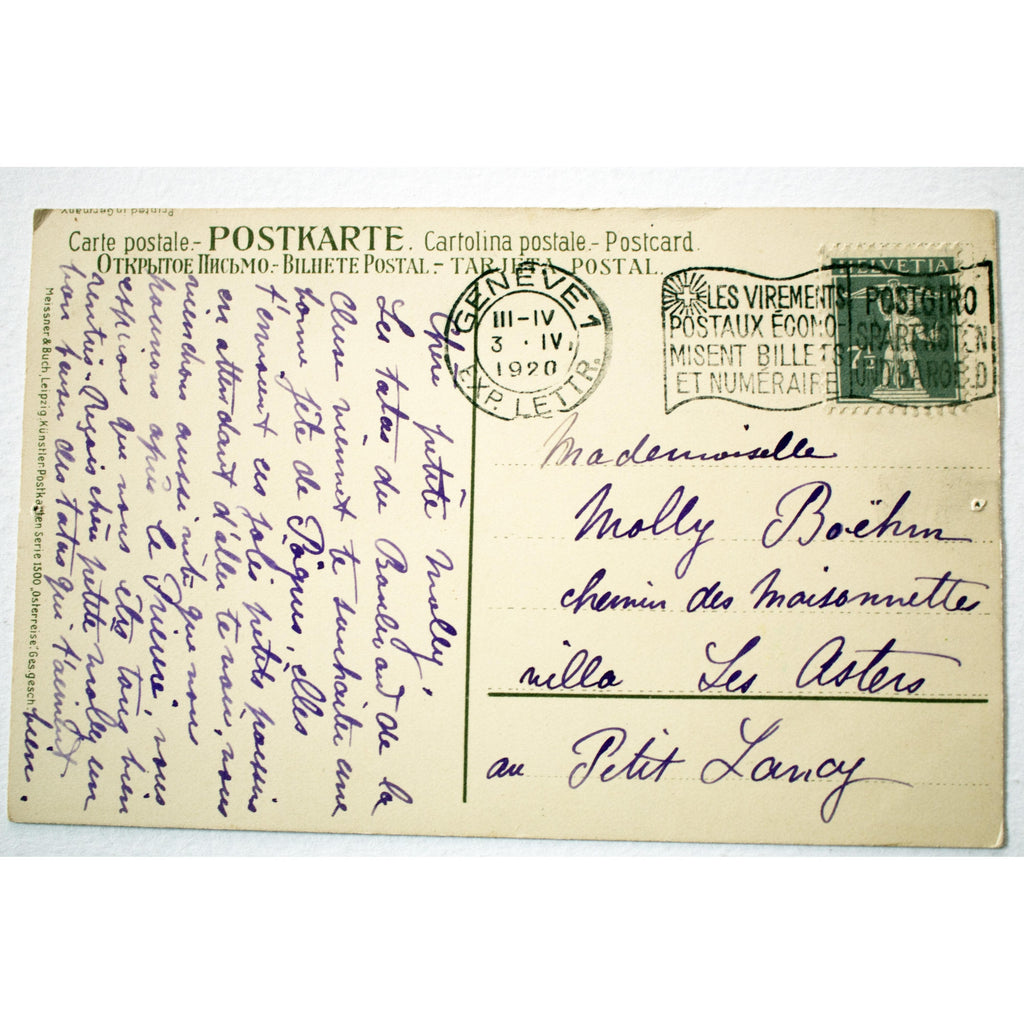 Printed in Germany
Carte postale.- POSTKARTE. Cartolina postale.- Postcard.
Открытое Письмо.- Bilhete Postal.- Tarjeta Postal.
HELVETIA
7½
GENÈVE 1
III-IV
3 . IV.
1920
EXP. LETTR.
LES VIREMENTS
POSTAUX ÉCONO-
MISENT BILLETS
ET NUMÉRAIRE
POSTGIRO
SPART NOTEN
UND BARGELD
Mademoiselle
Molly Boëhm
chemin des Maisonnettes
villa Les Asters
au Petit Lancy
Chère petite Molly,
Les tatas du Boulevard de la
Cluse viennent te souhaiter une
bonne fête de Pâques, elles
t'envoient ces jolis petits poussins
en attendant d'aller te voir, nous
viendrons aussi vite que nous
pourrons après la
espérons que vous êtes tous bien
rentrés. Reçois chère petite Molly un
bon baiser des tatas qui t'aiment
bien.
Meissner & Buch, Leipzig. Künstler-Postkarten Serie 1500 „Osterreise". Ges. gesch.